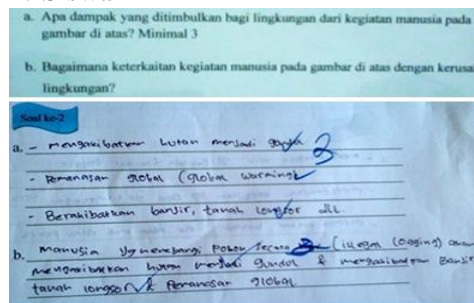 a. Apa dampak yang ditimbulkan bagi lingkungan dari kegiatan manusia pada
gambar di atas? Minimal 3
b. Bagaimana keterkaitan kegiatan manusia pada gambar di atas dengan kerusa
lingkungan?
Soal ke-2
a. - mengakibatkan hutan menjadi 3
- Pemanasan global (global warming)
- Berakibatkan banjir, tanah longsor dll.
b. manusia yg menebangi pohon secara (ilegal logging)
mengakibatkan hutan menjadi gundul & mengakibatkan Banjir
tanah longsor & Pemanasan global